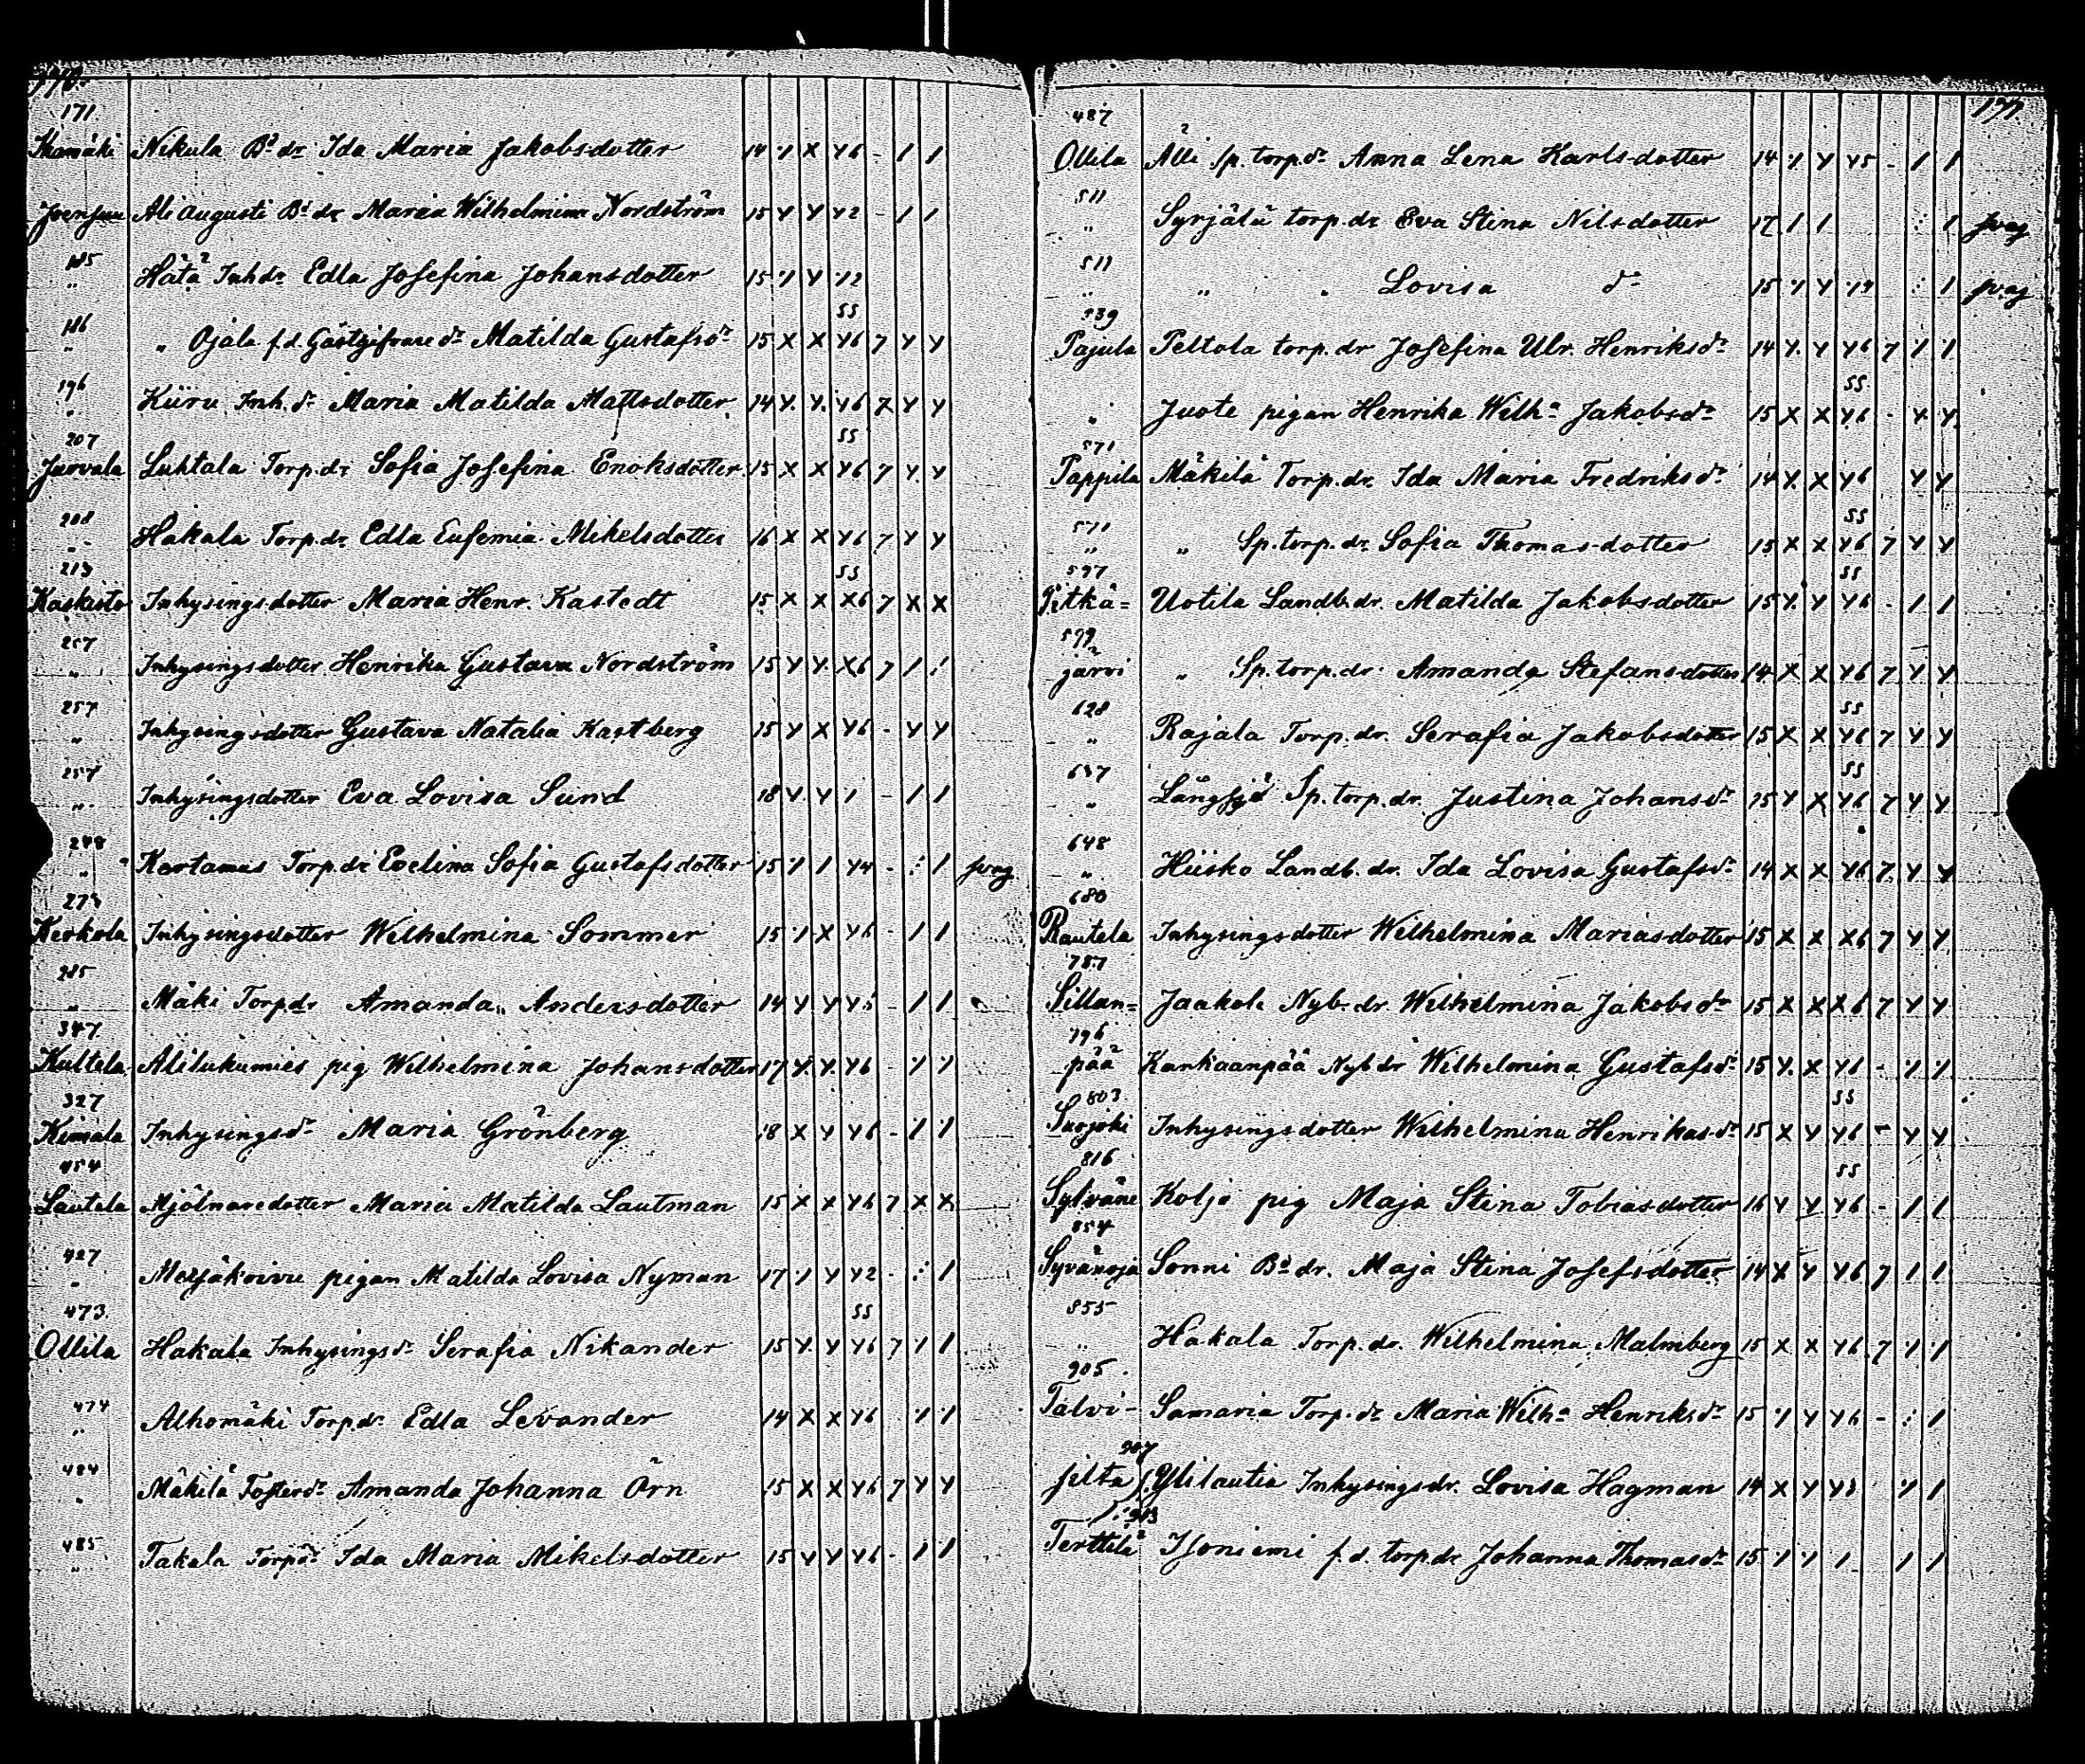 171
Nikula Bd dr Ida Maria Jakobsdotter 14
Ali Augusti Bd dr Maria Wilhelmina Nordström 15
185
" Hätä Inhdr Edla Josefina Johansdotter 15
186 SS
" " Ojala f.d. Gästgifvare dr Matilda Gustafsdr 15 X X Y6 7 Y Y
196
" Kiiru Inh. dr Maria Matilda Mattsdotter 14 Y Y Y6 7 Y Y
207 SS
Jurvala Luhtala Torp.dr Sofia Josefina Enoksdotter 15 X X Y6 7 Y Y
208
" Hakala Torp.dr Edla Eufemia Mikelsdotter 16 X X Y6 7 Y Y
213 SS
Kaskisto Inhysingsdotter Maria Henr. Kastedt 15 X X X6 7 X X
257
" Inhysingsdotter Henrika Gustava Nordström 15 Y Y X6 7 / /
257
" Inhysingsdotter Gustava Natalia Kastberg 15 Y X Y6 - Y Y
257
" Inhysingsdotter Eva Lovisa Sund 18 Y Y 1 - / /
" Kartamus Torp.dr Evelina Sofia Gustafsdotter 15 / / Y4 - /
Kerkola Inhysingsdotter Wilhelmina Sommer 15 / X Y6 - / /
285
" Mäki Torp.dr Amanda Andersdotter 14 Y Y
347
Kultela Alilukumies pig Wilhelmina Johansdotter 17 Y Y Y6 - / /
327
Kimala Inhysingsdr Maria Grönberg 18 X Y Y6 - / /
454
Lautela Mjölnaredotter Maria Matilda Lautman 15 X X Y6 7 X X
427
" pigan Matilda Lovisa Nyman 17 / Y Y2 - /
473 SS
Ollila Hakala Inhysingsdr Serafia Nikander 15 Y Y Y6 7 / /
474
" Alhomäki Torp.dr Edla Levander 14 X X Y6 / /
484
" Mäkilä Fosterdr Amanda Johanna Örn 15 X X Y6 7 Y Y
485
" Takala Torpdr Ida Maria Mikelsdotter 15 Y Y Y6 - / /
487
Ollila Alli Sp. torpdr Anna Lena Karlsdotter 14 / Y Y5 - / /
511
" Syrjälä torp.dr Eva Stina Nilsdotter 17 / /
511
" " " Lovisa dr 15 / Y
539
Pajula Peltola torp.dr Josefina Ulr. Henriksdr 14 Y Y Y6 7 / /
SS
" Juote pigan Henrika Wilha Jakobsdr 15 X X Y6 - Y Y
571
Pappila Mäkilä Torp.dr. Ida Maria Fredriksdr 14 Y X Y6 Y Y
571 SS
" " Sp.torp.dr Sofia Thomasdotter 15 X X Y6 7 Y Y
597 SS
Pitkä= Uotila Landb.dr. Matilda Jakobsdotter 15 Y Y Y6 - / /
järvi " Sp.torp.dr. Amanda Stefansdotter 14 X X Y6 7 Y Y
628 SS
" Rajala Torp.dr. Serafia Jakobsdotter 15 X X Y6 7 Y Y
637 SS
" Sp.torp.dr. Justina Johansdr 15 Y X Y6 7 Y Y
648
" Hiisko Landb.dr. Ida Lovisa Gustafsdr 14 X X Y6 7 Y Y
680
Rautela Inhysingsdotter Wilhelmina Mariasdotter 15 X X X6 7 Y Y
787
Sillan= Jaakola Nyb.dr. Wilhelmina Jakobsdr 15 X X X6 7 Y Y
796
pää Kankaanpää Nybdr Wilhelmina Gustafsdr 15 Y X Y6 - / /
803 SS
Suojoki Inhysingsdotter Wilhelmina Henrikasdr 15 X Y Y6 - Y Y
816 SS
Sylväne Koljo pig Maja Stina Tobiasdotter 16 Y Y Y6 - / /
854
Syvänoja Sonni Bd dr. Maja Stina Josefsdotter 14 X Y Y6 7 / /
855
" Hakala Torp.dr. Wilhelmina Malmberg 15 X X Y6 7 / /
905
Talvi- Samaria Torp.dr Maria Wilha Henriksdr 15 / Y Y6 - /
907
silta Ylilautia Inhysingsdr. Lovisa Hagman 14 X Y Y3 / /
913
Terttilä Isoniemi f.d. torpdr Johanna Thomasdr 15 / / / / /